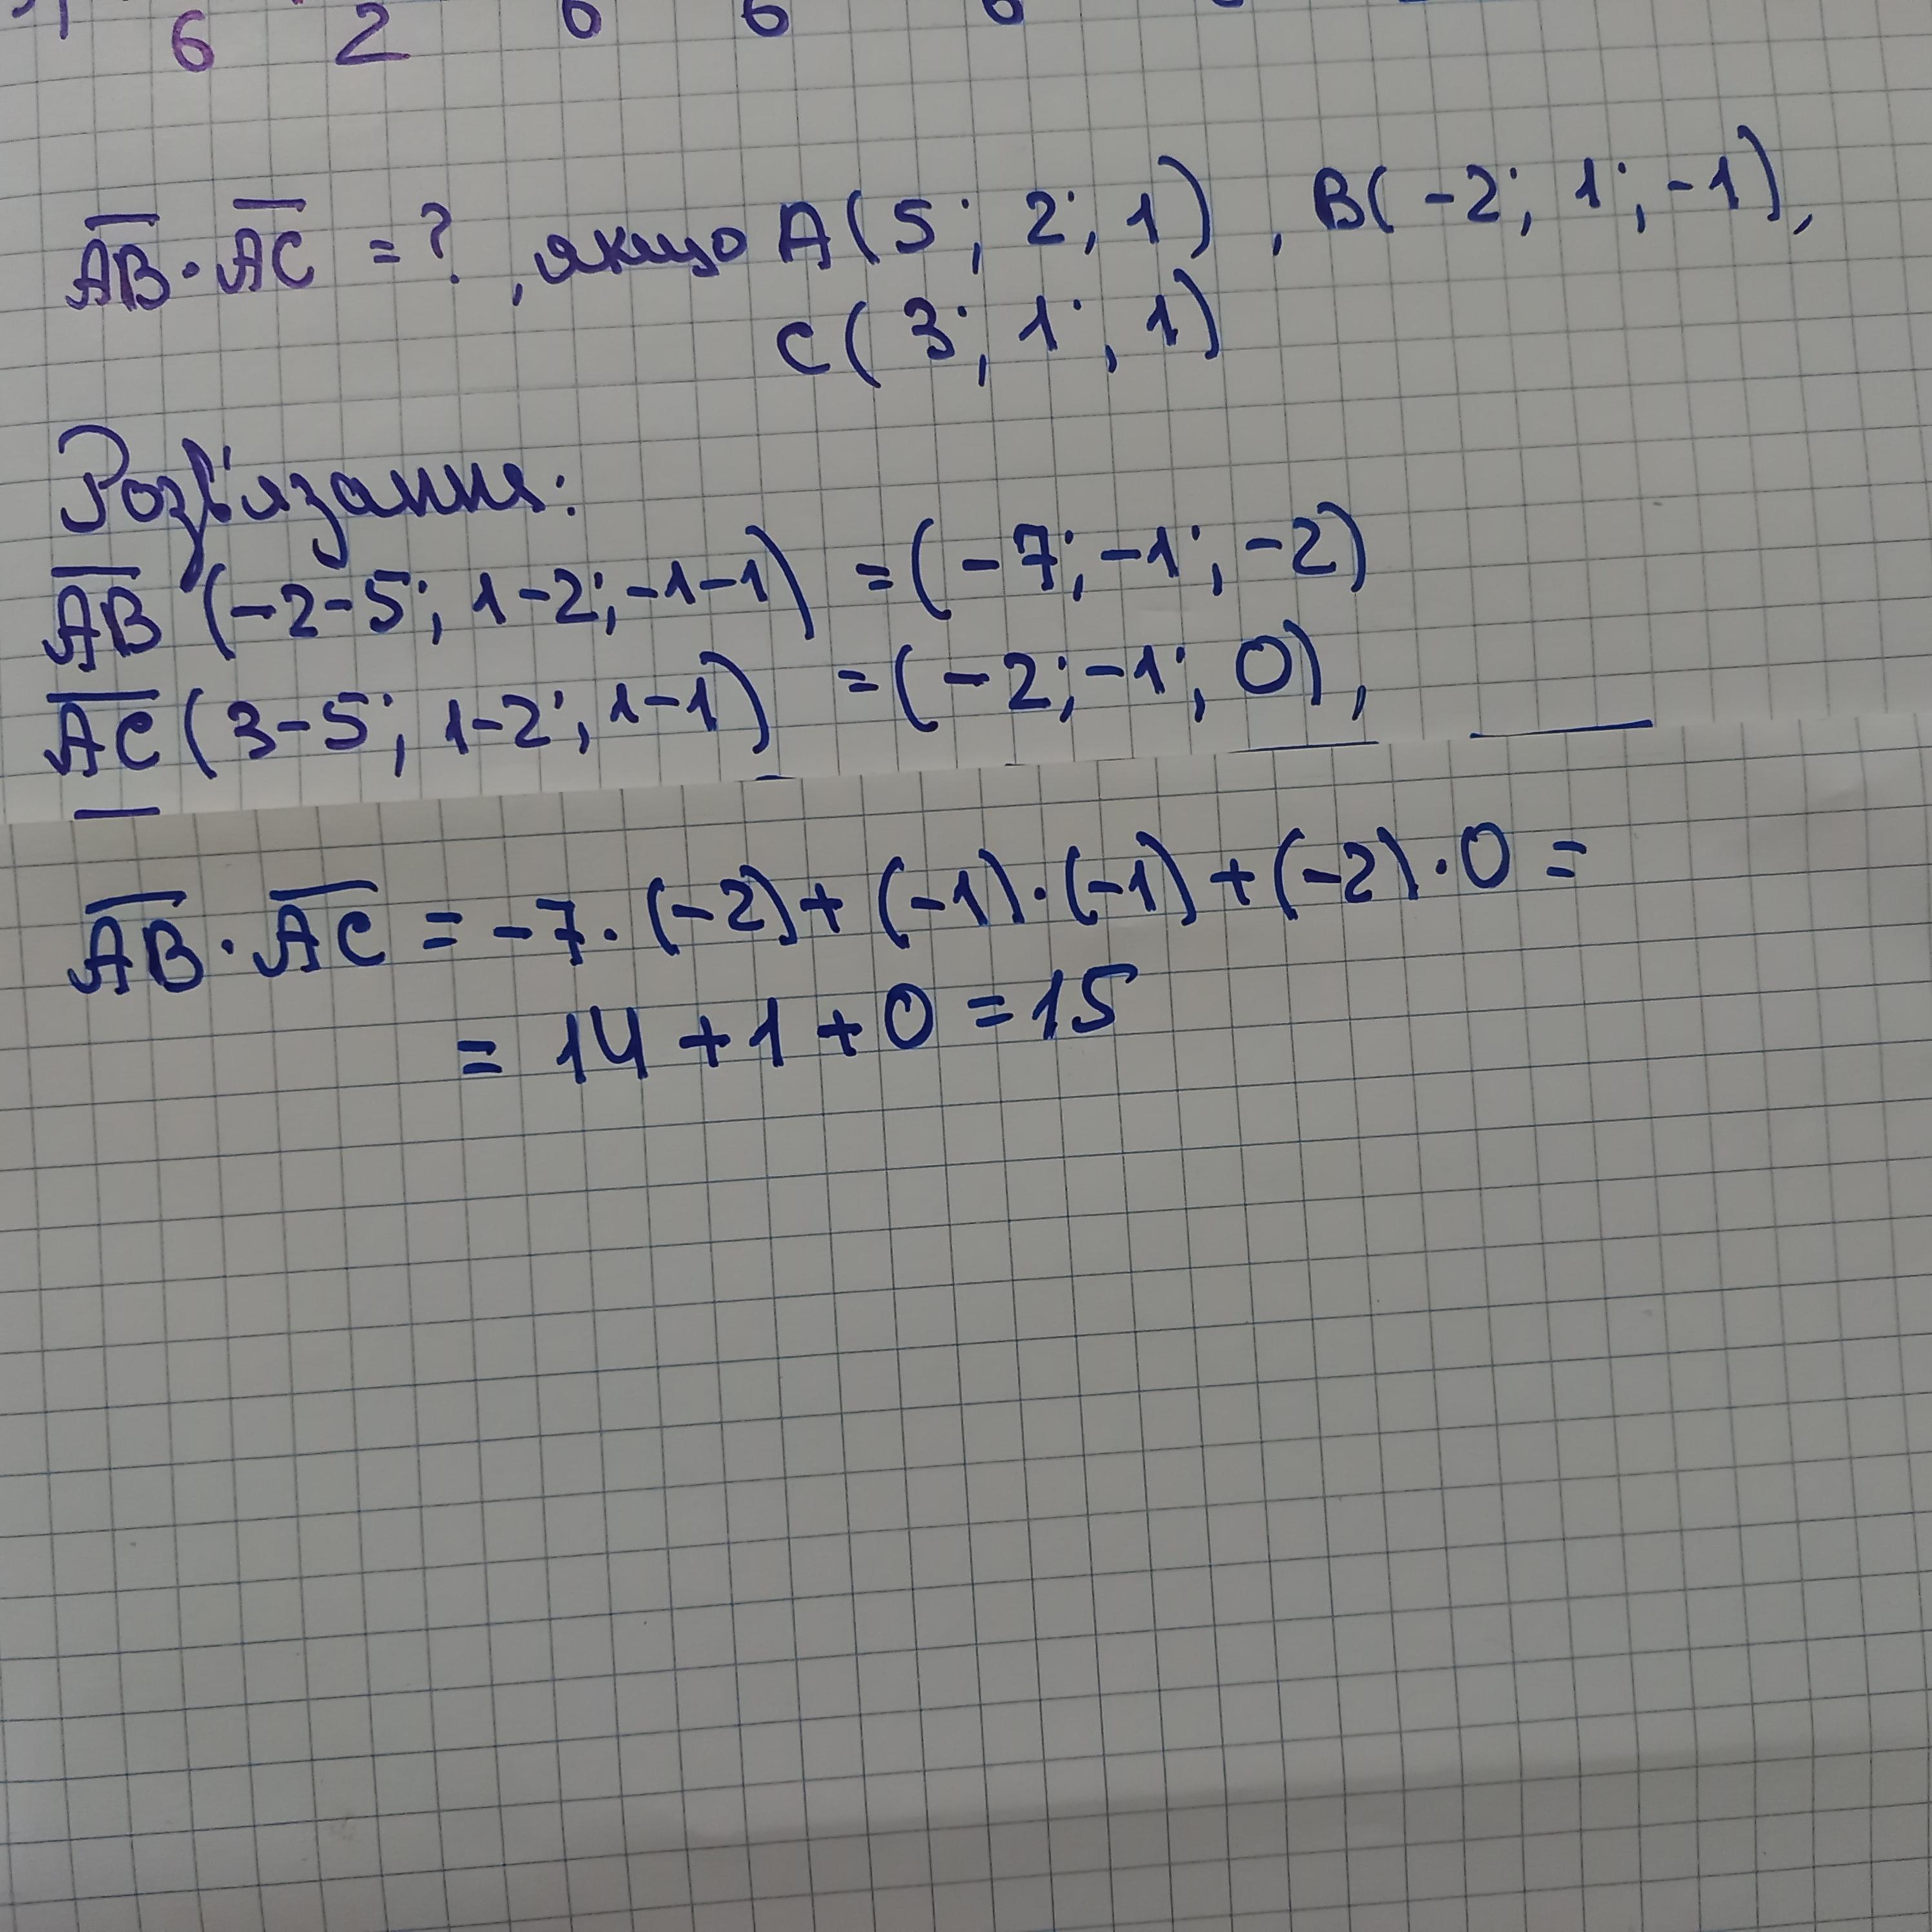 6 2 6 6 6
AB · AC = ?, якщо A(5; 2; 1), B(-2; 1; -1),
C(3; 1; 1)
Розв'язання:
AB (-2-5; 1-2; -1-1) = (-7; -1; -2)
AC (3-5; 1-2; 1-1) = (-2; -1; 0),
AB · AC = -7 · (-2) + (-1) · (-1) + (-2) · 0 =
= 14 + 1 + 0 = 15